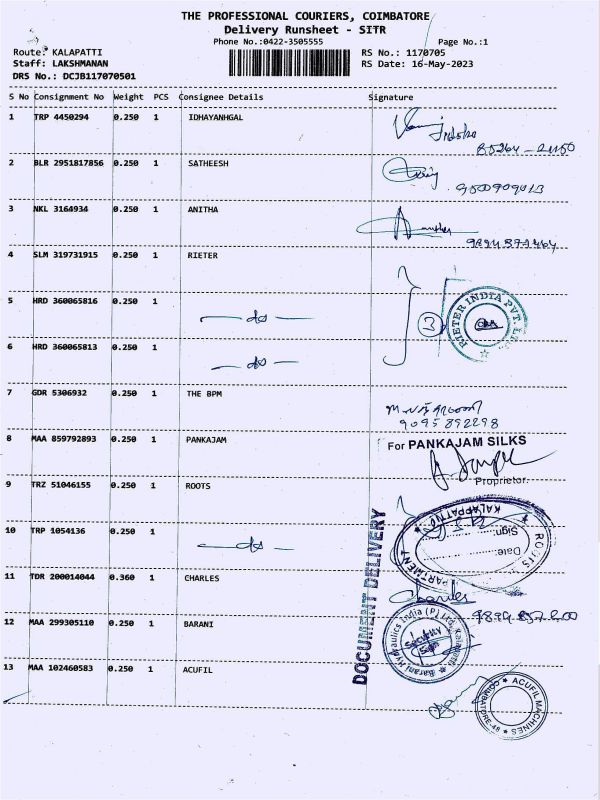 THE PROFESSIONAL COURIERS, COIMBATORE
Delivery Runsheet - SITR
Phone No.:0422-3505555
Page No.:1
Route: KALAPATTI
Staff: LAKSHMANAN
DRS No.: DCJB117070501
RS No.: 1170705
RS Date: 16-May-2023
S No Consignment No Weight PCS Consignee Details Signature
1 TRP 4450294 0.250 1 IDHAYANHGAL
2 BLR 2951817856 0.250 1 SATHEESH
3 NKL 3164934 0.250 1 ANITHA
4 SLM 319731915 0.250 1 RIETER
5 HRD 360065816 0.250 1 — do —
3
RIETER INDIA PVT. LTD.
6 HRD 360065813 0.250 1 — do —
7 GDR 5306932 0.250 1 THE BPM
9095892298
8 MAA 859792893 0.250 1 PANKAJAM
For PANKAJAM SILKS
Proprietor
9 TRZ 51046155 0.250 1 ROOTS
10 TRP 1054136 0.250 1 — do —
KALAPATTI
ROOTS
Sign:
Date:
DOCUMENT DELIVERY
11 TDR 200014044 0.360 1 CHARLES
Charles
12 MAA 299305110 0.250 1 BARANI
Barani Hydraulics India (P) Ltd.
Security
Sign
13 MAA 102460583 0.250 1 ACUFIL
ACUFIL MACHINES
COIMBATORE-48